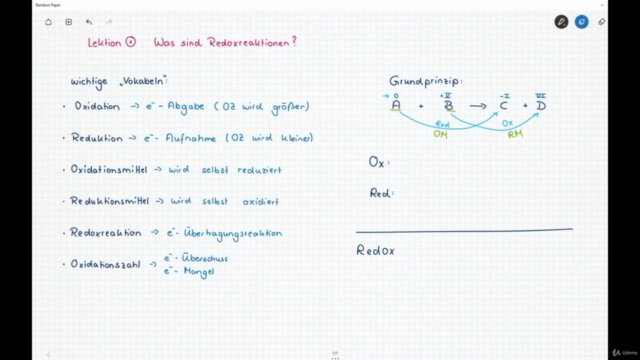 Bamboo Paper
Lektion ① Was sind Redoxreaktionen?
wichtige „Vokabeln":
· Oxidation → e⁻ - Abgabe (OZ wird größer)
· Reduktion → e⁻ - Aufnahme (OZ wird kleiner)
· Oxidationsmittel → wird selbst reduziert
· Reduktionsmittel → wird selbst oxidiert
· Redoxreaktion → e⁻ - Übertragungsreaktion
· Oxidationszahl → e⁻ - Überschuss
e⁻ - Mangel
Grundprinzip:
0 -I
A + B → C + D
Red Ox
OM RM
Ox:
Red:
Redox
1/1
Udemy